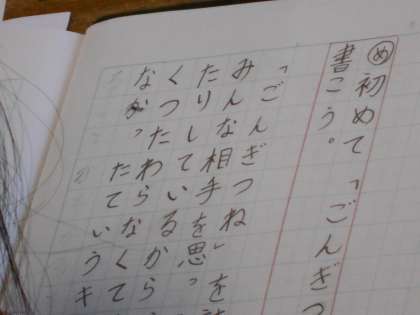 め 初めて「ごんぎつ
書こう。
「ごんぎつね」を
みんな相手を思
たりしているから
くつたわらなくて
なかったていうキ